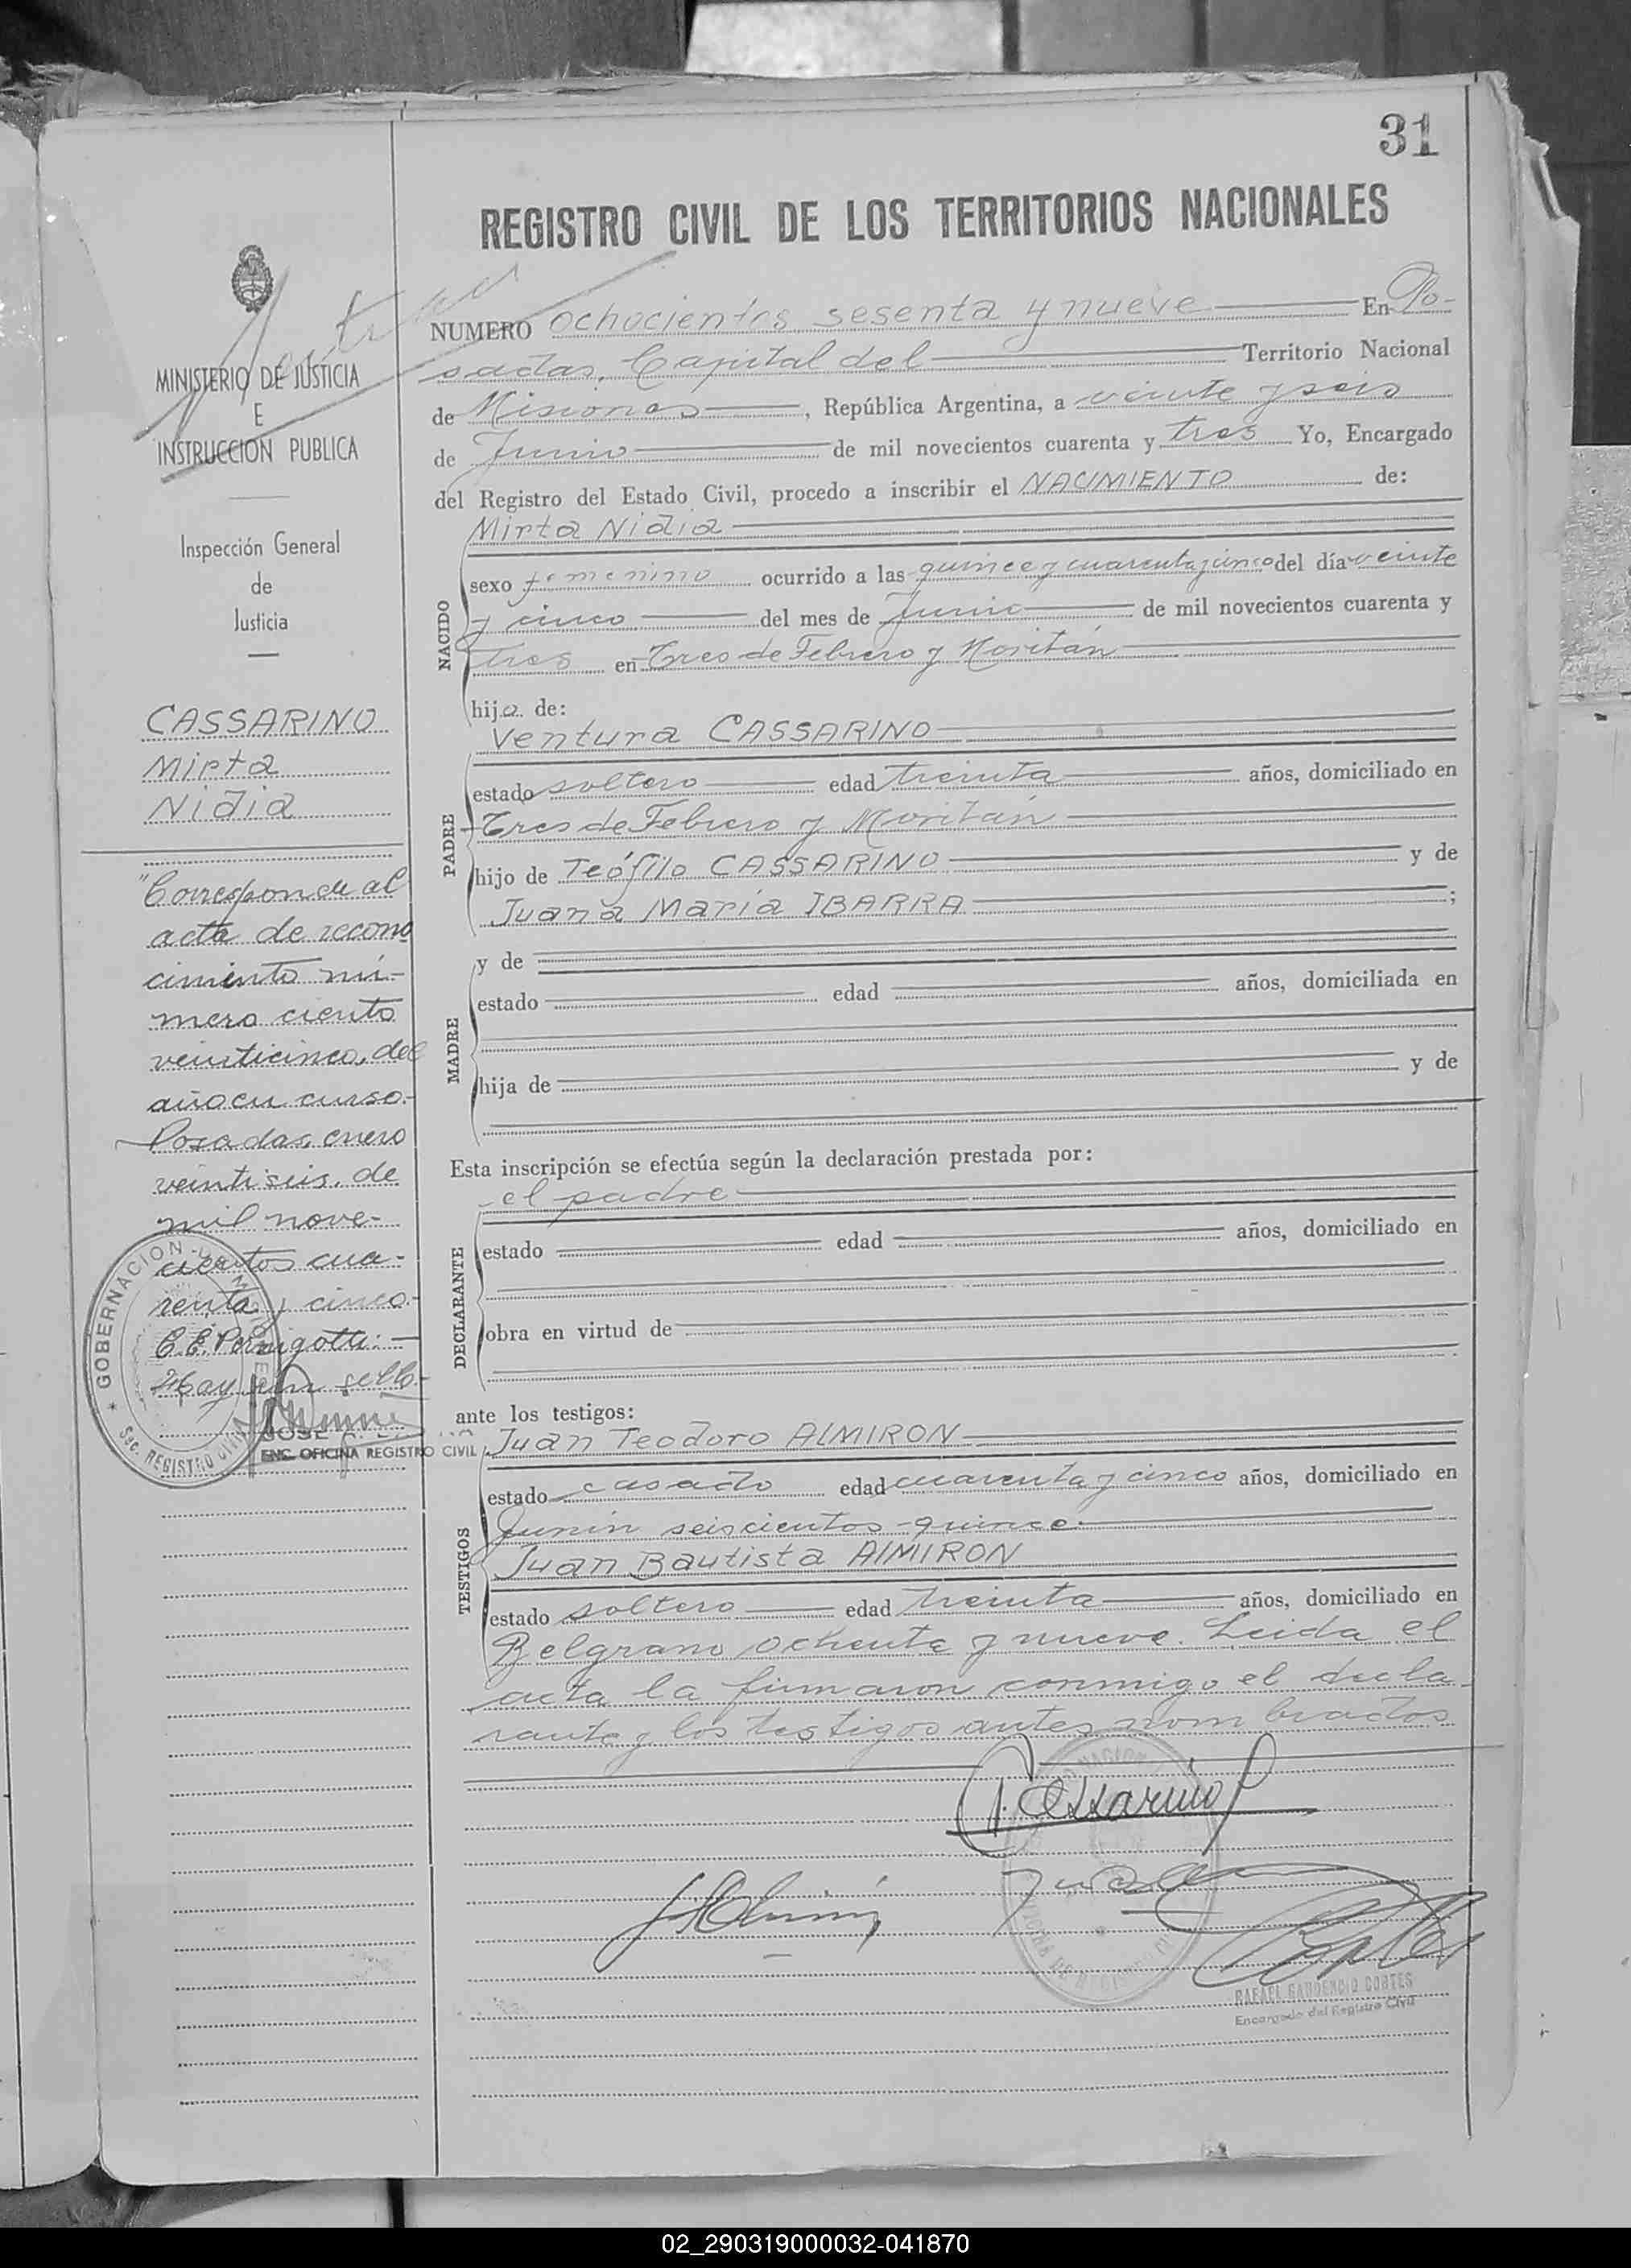 31
REGISTRO CIVIL DE LOS TERRITORIOS NACIONALES
MINISTERIO DE JUSTICIA
E
INSTRUCCION PUBLICA
Inspección General
de
Justicia
CASSARINO
Mirta
Nidia
"Corresponde al
acta de recono
cimiento nú-
mero ciento
veinticinco, del
año en curso.-
Posadas, enero
veintiseis, de
mil nove-
cientos cua-
renta y cinco.-
C.E. Pernigotti: -
Hay un sello.-
GOBERNACION
Sec. REGISTRO CIVIL
JOSE
ENC. OFICINA REGISTRO CIVIL
NUMERO ochocientos sesenta y nueve En Po-
sadas, Capital del Territorio Nacional
de Misiones, República Argentina, a veinte y seis
de Junio de mil novecientos cuarenta y tres Yo, Encargado
del Registro del Estado Civil, procedo a inscribir el NACIMIENTO de:
NACIDO
Mirta Nidia
sexo femenino ocurrido a las quince y cuarenta y cinco del día veinte
y cinco del mes de Junio de mil novecientos cuarenta y
tres en Tres de Febrero y Moritán
hija de:
PADRE
Ventura CASSARINO
estado soltero edad treinta años, domiciliado en
Tres de Febrero y Moritán
hijo de Teófilo CASSARINO y de
Juana Maria IBARRA ;
MADRE
y de
estado edad años, domiciliada en
hija de y de
Esta inscripción se efectúa según la declaración prestada por:
DECLARANTE
el padre
estado edad años, domiciliado en
obra en virtud de
ante los testigos:
TESTIGOS
Juan Teodoro ALMIRON
estado casado edad cuarenta y cinco años, domiciliado en
Junin seiscientos quince
Juan Bautista AlMIRON
estado soltero edad treinta años, domiciliado en
Belgrano ochenta y nueve. Leida el
acta la firmaron conmigo el decla-
rante y los testigos antes nombrados
Cassarino
RAFAEL GAUDENCIO CORTES
Encargado del Registro Civil
02_290319000032-041870